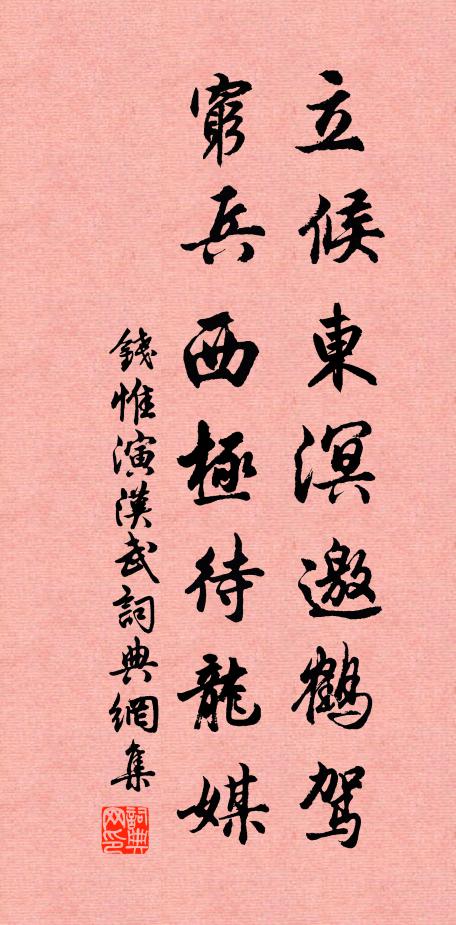 立候東溟邀鶴駕
窮兵西極待龍媒
錢惟演漢武詞典網集
詞典网印